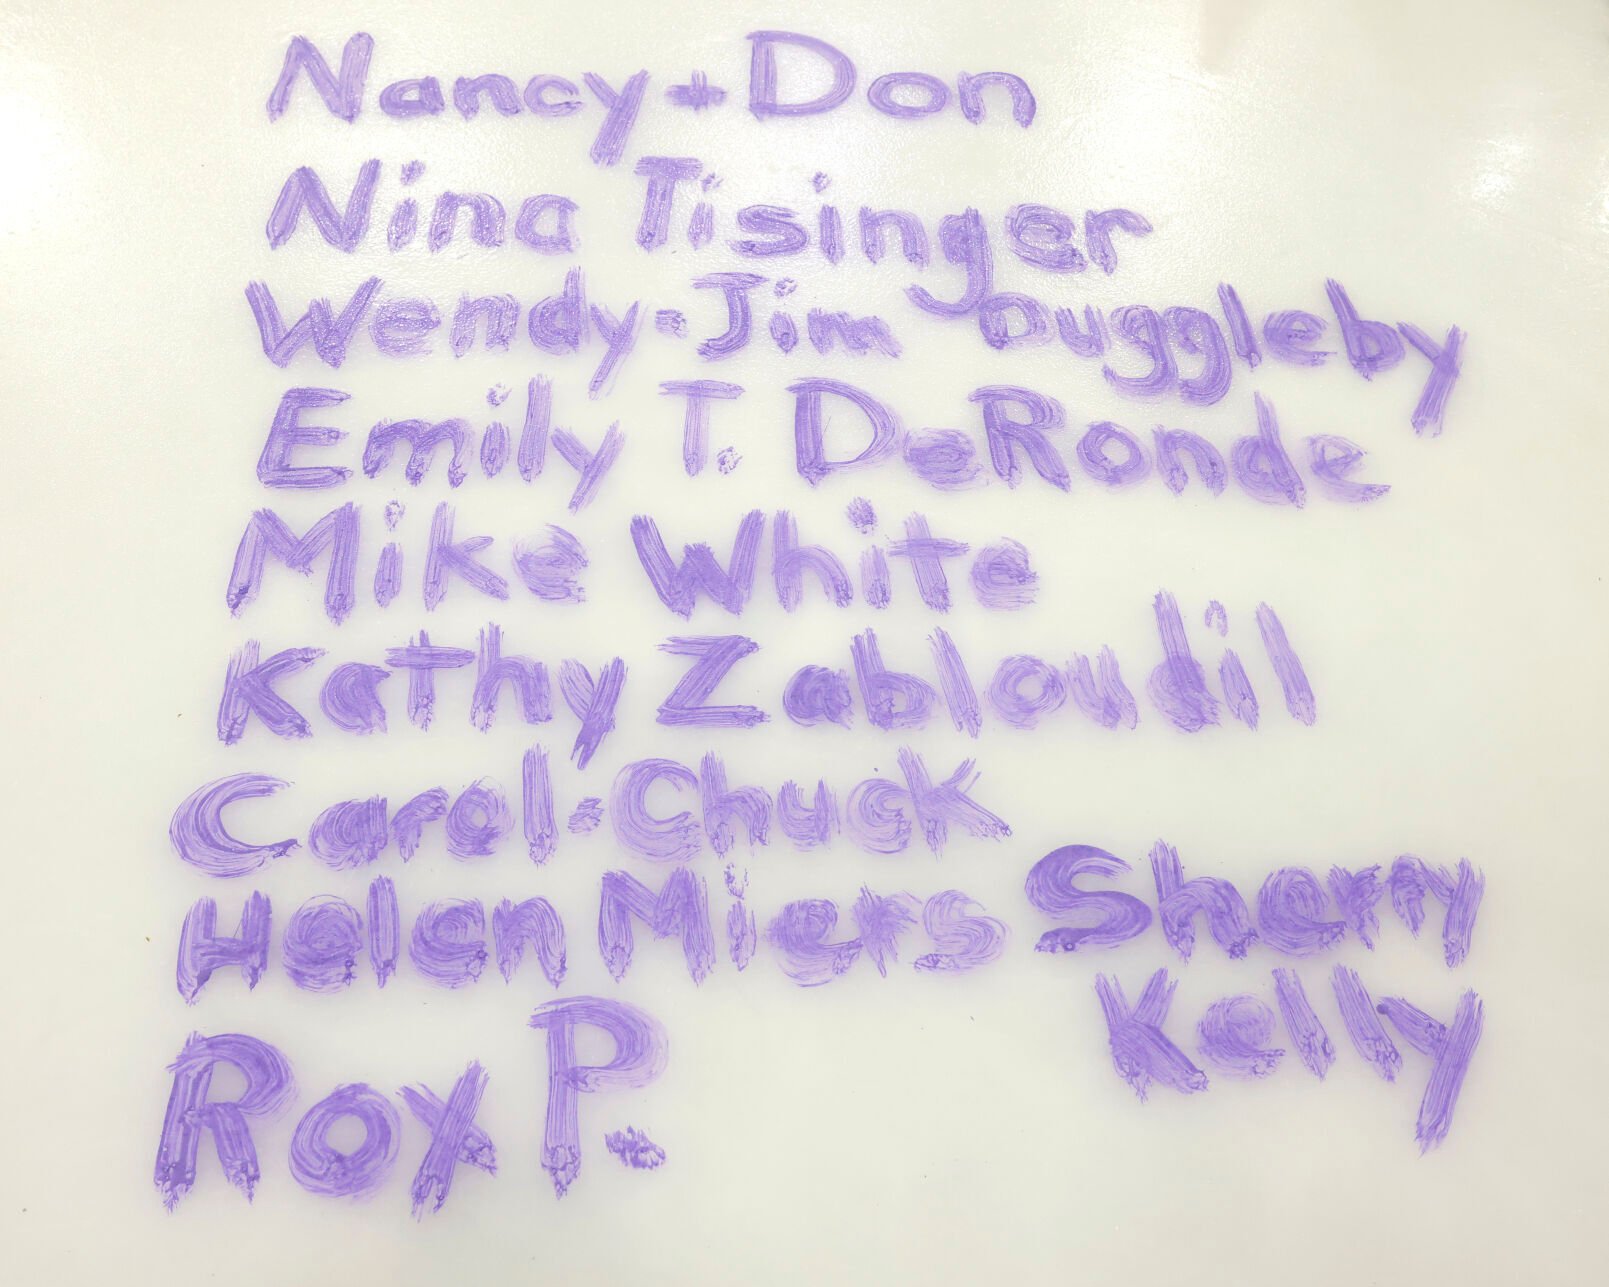 Nancy + Don
Nina Tisinger
Wendy-Jim Duggleby
Emily T. DeRonde
Mike White
Kathy Zabloudil
Carol-Chuck
Helen Miers
Sherry
Kelly
Rox P.